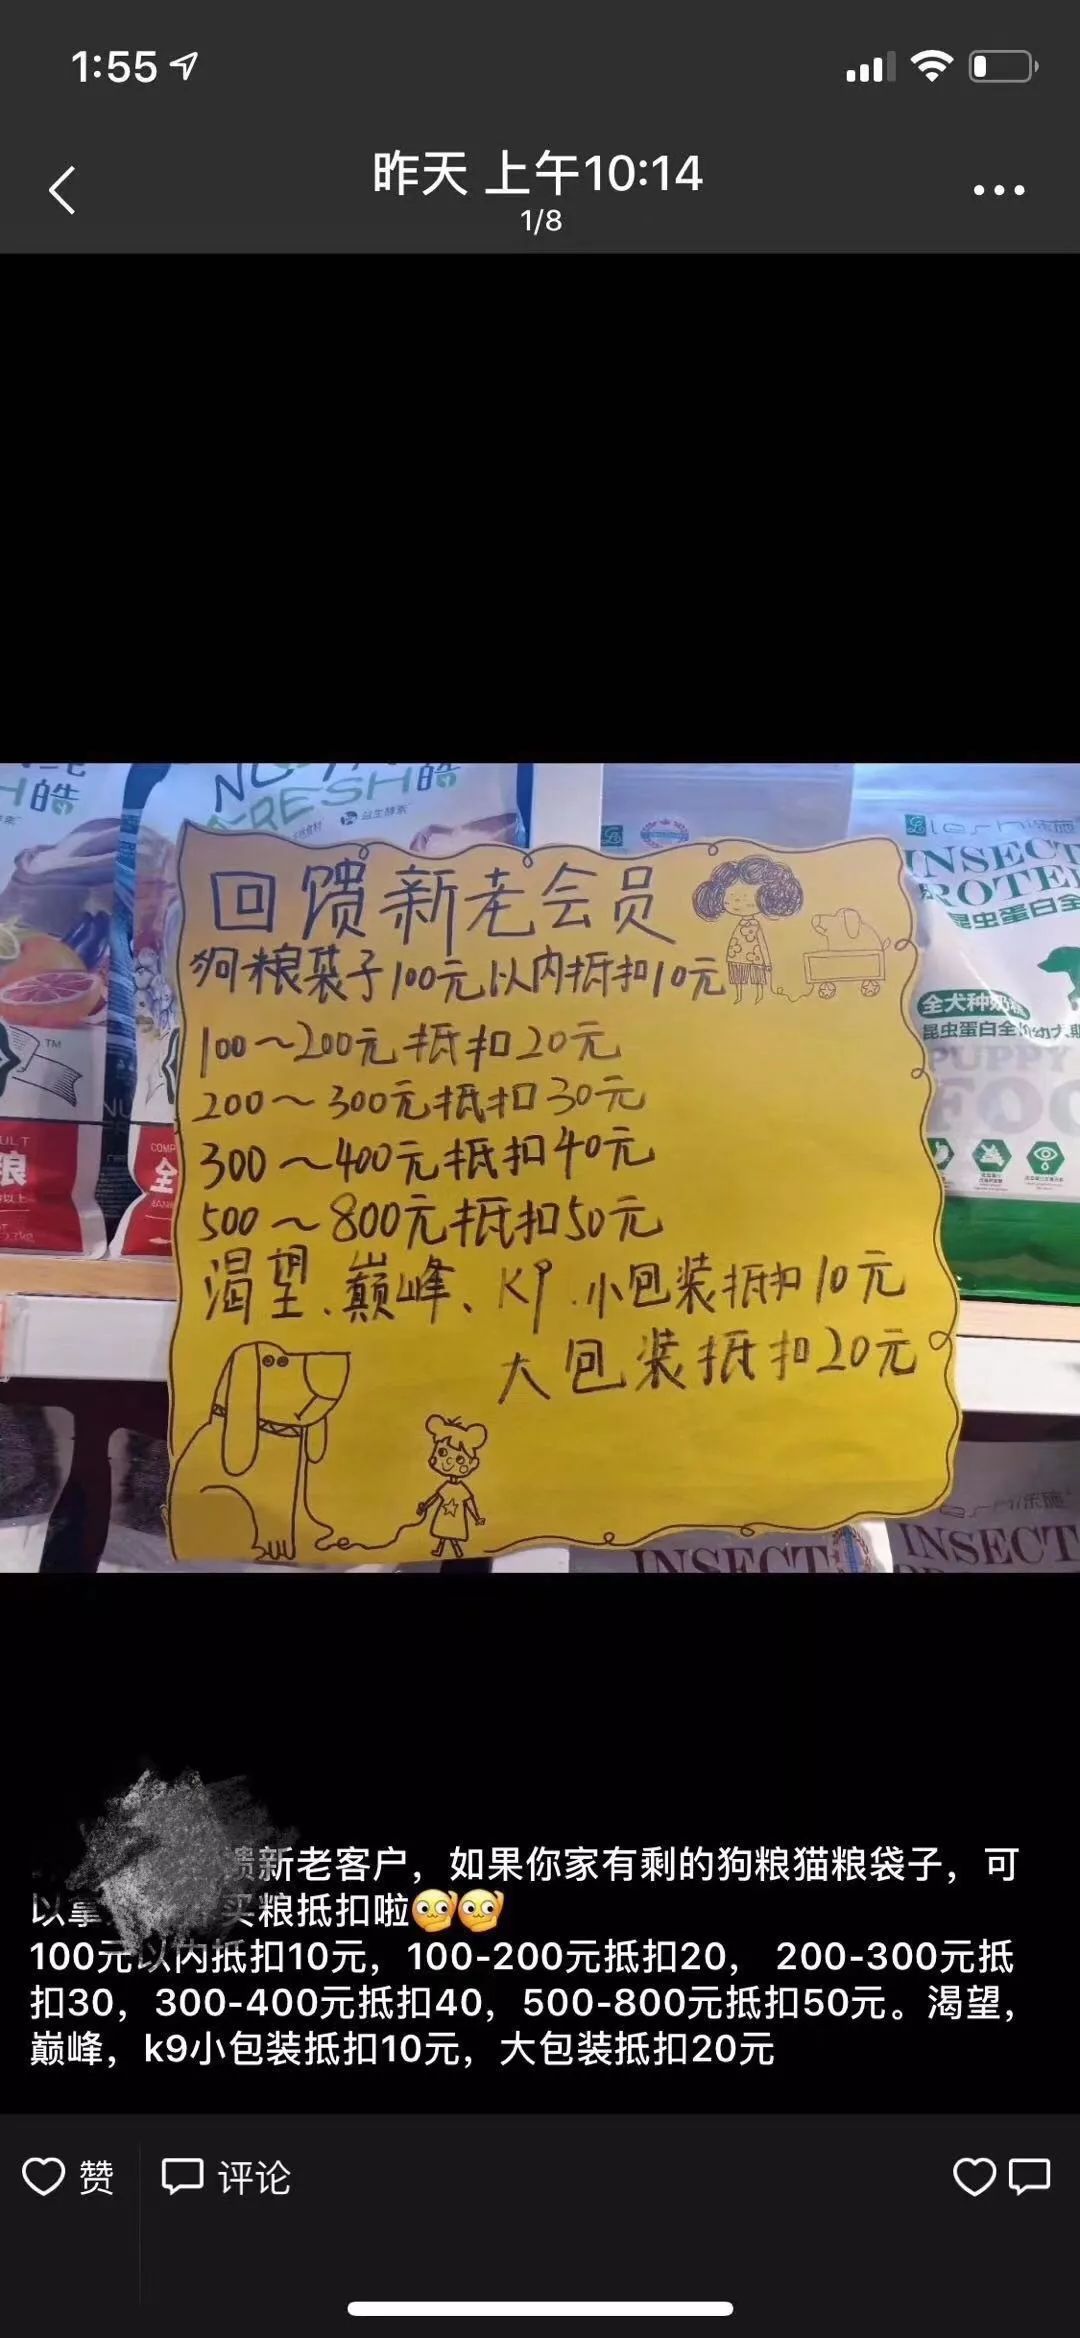 1:55
昨天 上午10:14
1/8
FRESH皓
益生酵素
INSECT
昆虫蛋白全
回馈新老会员
狗粮袋子100元以内抵扣10元
100~200元抵扣20元
200~300元抵扣30元
300~400元抵扣40元
500~800元抵扣50元
渴望、巅峰、K9、小包装抵扣10元
大包装抵扣20元
全犬种奶糕
PUPPY
INSECT
INSECT
馈新老客户，如果你家有剩的狗粮猫粮袋子，可
以拿 买粮抵扣啦🫣🫣
100元以内抵扣10元，100-200元抵扣20， 200-300元抵
扣30，300-400元抵扣40，500-800元抵扣50元。渴望，
巅峰，k9小包装抵扣10元，大包装抵扣20元
赞 评论